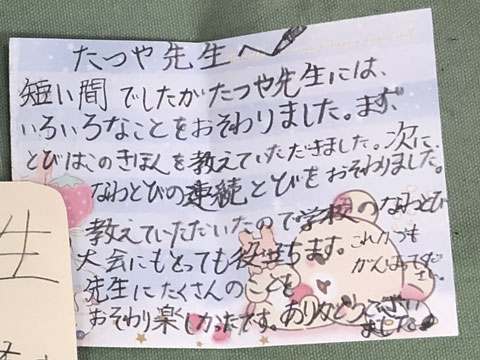 たつや先生へ
短い間でしたがたつや先生には、
いろいろなことをおそわりました。まず、
とびはこのきほんを教えていただきました。次に、
なわとびの連続とびをおそわりました。
教えていただいたので学校のなわとび
大会にもとっても役立ちます。
先生にたくさんのことを
おそわり楽しかったです。ありがとうござい
ました。
これからも
がんばってくだ
さい。
生